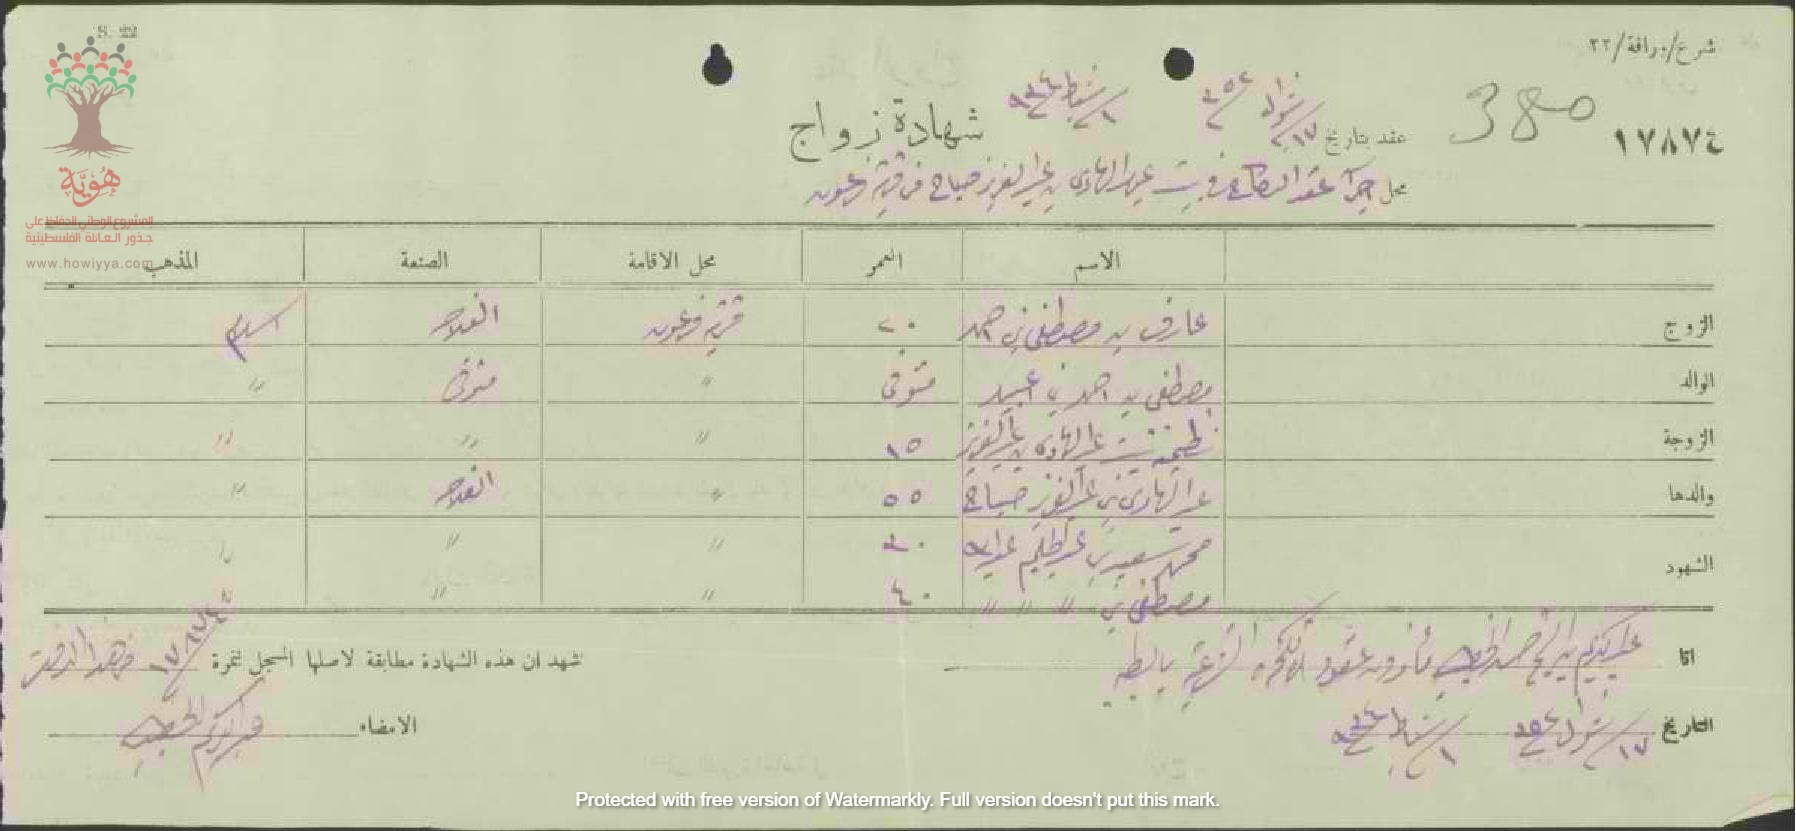 S. 22
شرع/زرافة/٢٢
١٧٨٧٤
380
عقد بتاريخ ١٧ شوال ٣٥٢ ١ شباط ٩٣٤
شهادة زواج
محل اجراء عقد النكاح في بيت عبد الهادي بن عبد العزيز صباح في قرية فرعون
هُويّة
المشروع الوطني للحفاظ على
جذور العائلة الفلسطينية
www.howiyya.com
الاسم العمر محل الاقامة الصنعة المذهب
الزوج عارف بن مصطفى بن احمد ٢٠ قرية فرعون الفلاحه اسلام
الوالد مصطفى بن احمد بن عبيد متوفى " متوفى "
الزوجة نظيمة بنت عبد الهادي بن عبد العزيز ١٥ " " "
والدها عبد الهادي بن عبد العزيز صباح ٥٥ " الفلاحه "
الشهود محمد سعيد بن عبد الحليم ٣٠ " " "
مصطفى بن " " " ٤٠ " " "
انا عبد الكريم بن الشيخ الخطيب مأذون عقود الانكحة الشرعية
شهد ان هذه الشهادة مطابقة لاصلها المسجل بنمرة ١٧٨٧٤ في هذا الدفتر
التاريخ ١٧ شوال ٣٥٢ ١ شباط ٩٣٤
الامضاء عبد الكريم الخطيب
Protected with free version of Watermarkly. Full version doesn't put this mark.